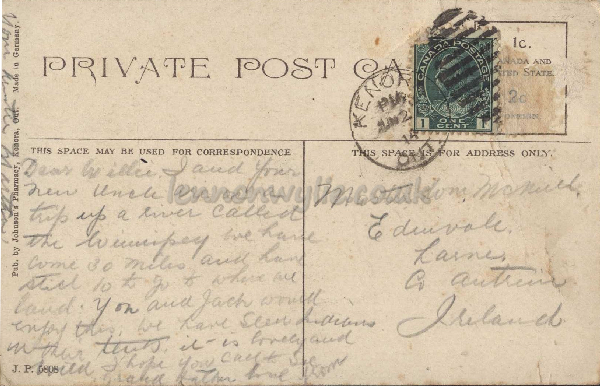 PRIVATE POST CA
1c.
CANADA AND
UNITED STATE.
2c
CANADA POSTAGE
1 ONE CENT 1
KENORA
PM
14
ONT
THIS SPACE MAY BE USED FOR CORRESPONDENCE
THIS SPACE IS FOR ADDRESS ONLY.
Dear Willie I and your
new Uncle are on a
trip up a river called
the Winnipeg we have
come 30 miles and have
still 10 to go to where we
land. You and Jack would
enjoy this. we have seen Indians
in their tents it is lovely and
wild I hope you
love from
lennonwylie.co.uk
Edenvale
Larne
Co Antrim
Ireland
Pub. by Johnson's Pharmacy, Kenora, Ont. Made in Germany.
J. P. 6808